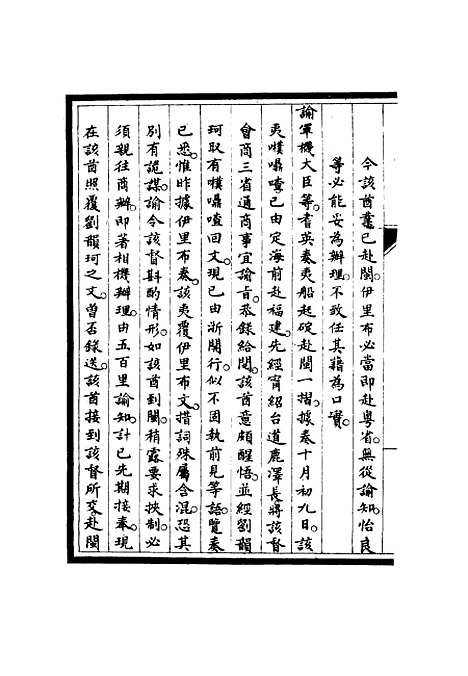 今該酋業已赴閩。伊里布必當即赴粵省。無從諭知。怡良
等必能妥為辦理。不致任其藉為口實。
諭軍機大臣等。耆英奏夷船起碇赴閩一摺。據奏十月初九日。該
夷噗𠸄喳已由定海前赴福建。先經甯紹台道鹿澤長將該督
會商三省通商事宜諭旨。恭錄給閱。該酋意頗醒悟。並經劉韻
珂取有噗𠸄喳回文。現已由浙開行。似不固執前見等語。覽奏
已悉。惟昨據伊里布奏。該夷覆伊里布文。措詞殊屬含混。恐其
別有詭謀。諭令該督斟酌情形。如該酋到閩。稍露要求挾制。必
須親往商辦。即著相機辦理。由五百里諭知。計已先期接奉。現
在該酋照覆劉韻珂之文。曾否錄送。該酋接到該督所交。赴閩